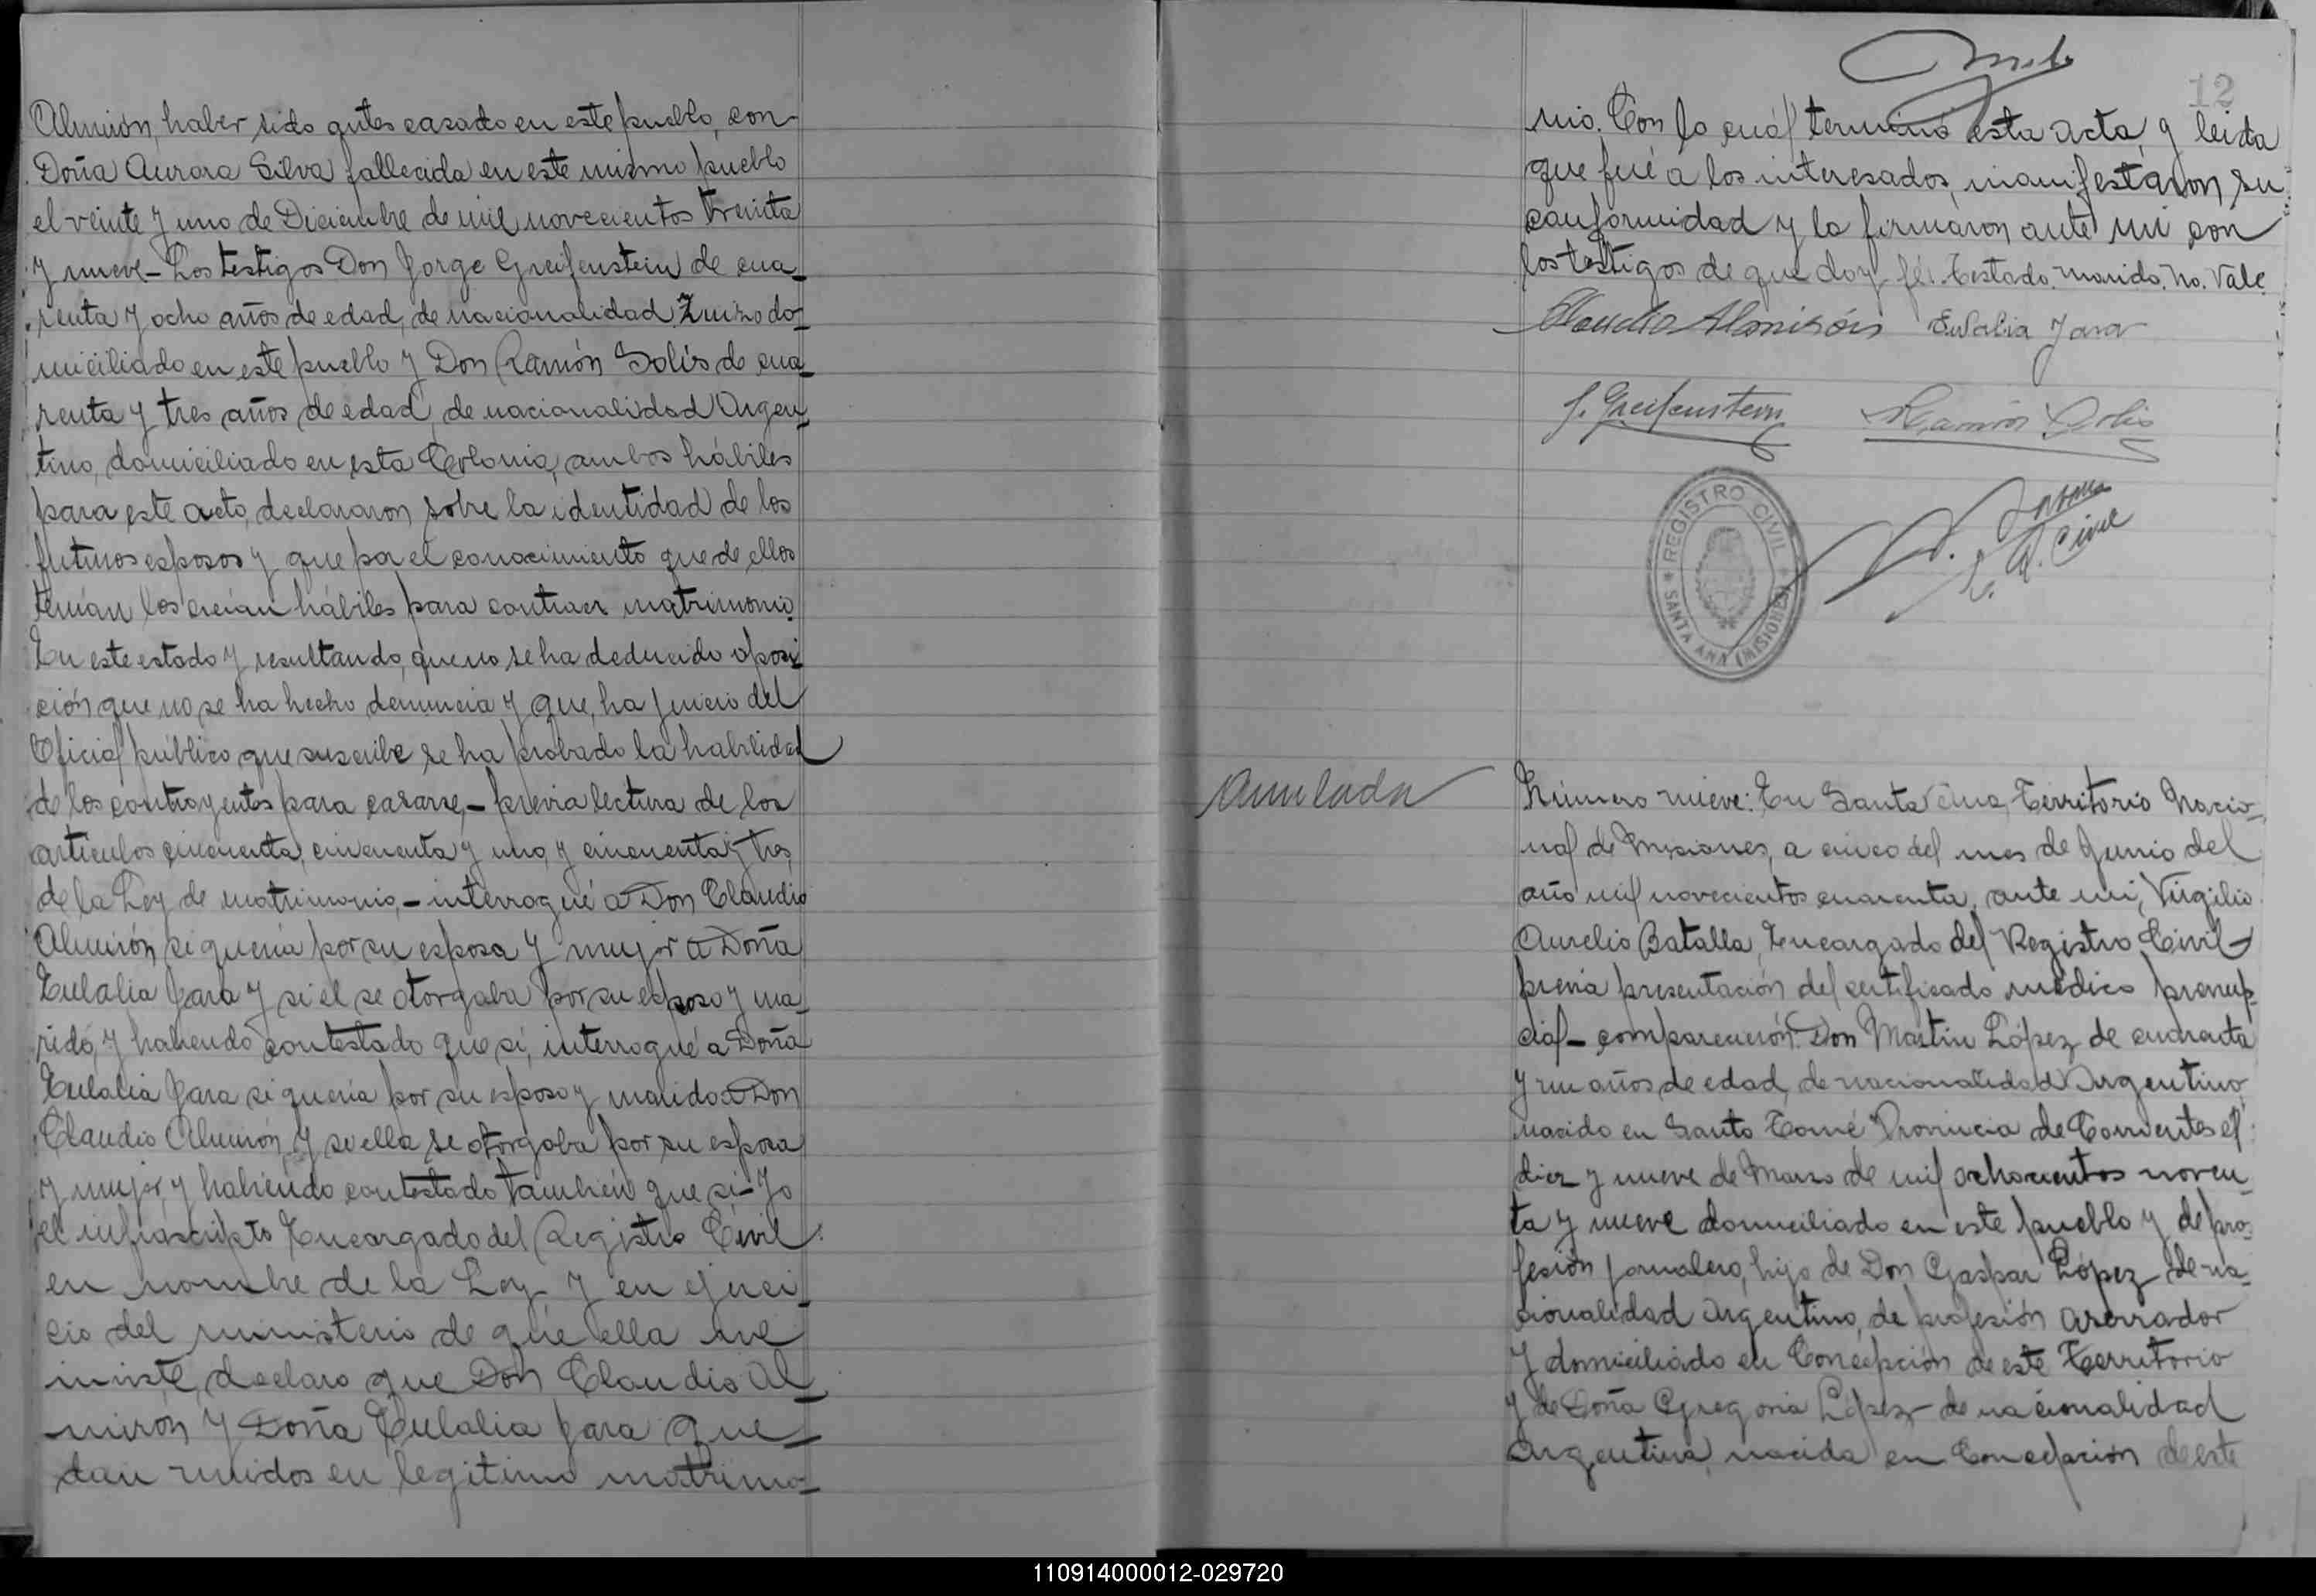 Almirón, haber sido antes casado en este pueblo, con
Doña Aurora Silva fallecida en este mismo pueblo
el veinte y uno de Diciembre de mil novecientos treinta
y nueve – Los testigos Don Jorge Greifenstein de cua-
renta y ocho años de edad, de nacionalidad Zuizo do-
miciliado en este pueblo y Don Ramón Solís de cua-
renta y tres años de edad, de nacionalidad Argen-
tino, domiciliado en esta Colonia, ambos hábiles
para este acto, declararon sobre la identidad de los
futuros esposos y que por el conocimiento que de ellos
tenían los creían hábiles para contraer matrimonio.
En este estado y resultando, que no se ha deducido oposi-
ción que no se ha hecho denuncia y que, ha juicio del
Oficial público que suscribe se ha probado la habilidad
de los contrayentes para casarse, – previa lectura de los
artículos cincuenta, cincuenta y uno, y cincuenta y tres,
de la Ley de matrimonio, – interrogué a Don Claudio
Almirón si quería por su esposa y mujer a Doña
Eulalia Jara y si el se otorgaba por su esposo y ma-
rido, y habiendo contestado que sí, interrogué a Doña
Eulalia Jara si quería por su esposo y marido a Don
Claudio Almirón, y si ella se otorgaba por su esposa
y mujer y habiendo contestado también que sí – Yo
el infrascripto Encargado del Registro Civil
en nombre de la Ley, y en ejerci-
cio del ministerio de que ella me
inviste, declaro que Don Claudio Al-
mirón y Doña Eulalia Jara que-
dan unidos en legitimo matrimo-
12
nio. Con lo cuál terminó esta acta, y leída
que fué á los interesados, manifestaron su
conformidad y la firmaron ante mi con
los testigos de que doy fé. Testado. marido. No. Vale.
Claudio Almirón Eulalia Jara
J. Greifenstein Ramón Solis
REGISTRO CIVIL
SANTA ANA (MISIONES)
E. R. Civil
Anulada
Número nueve: En Santa Ana, Territorio Nacio-
nal de Misiones, a cinco del mes de Junio del
año mil novecientos cuarenta, ante mi, Virgilio
Aurelio Batalla, Encargado del Registro Civil –
previa presentación del certificado médico prenup-
cial – comparecieron: Don Martin López de cuarenta
y un años de edad, de nacionalidad Argentino,
nacido en Santo Tomé Provincia de Corrientes el
diez y nueve de Marzo de mil ochocientos noven-
ta y nueve domiciliado en este pueblo y de pro-
fesión jornalero, hijo de Don Gaspar López de na-
cionalidad Argentino, de profesión aserrador
y domiciliado en Concepción de este Territorio
y de Doña Gregoria López de nacionalidad
Argentina, nacida en Concepción de este
110914000012-029720